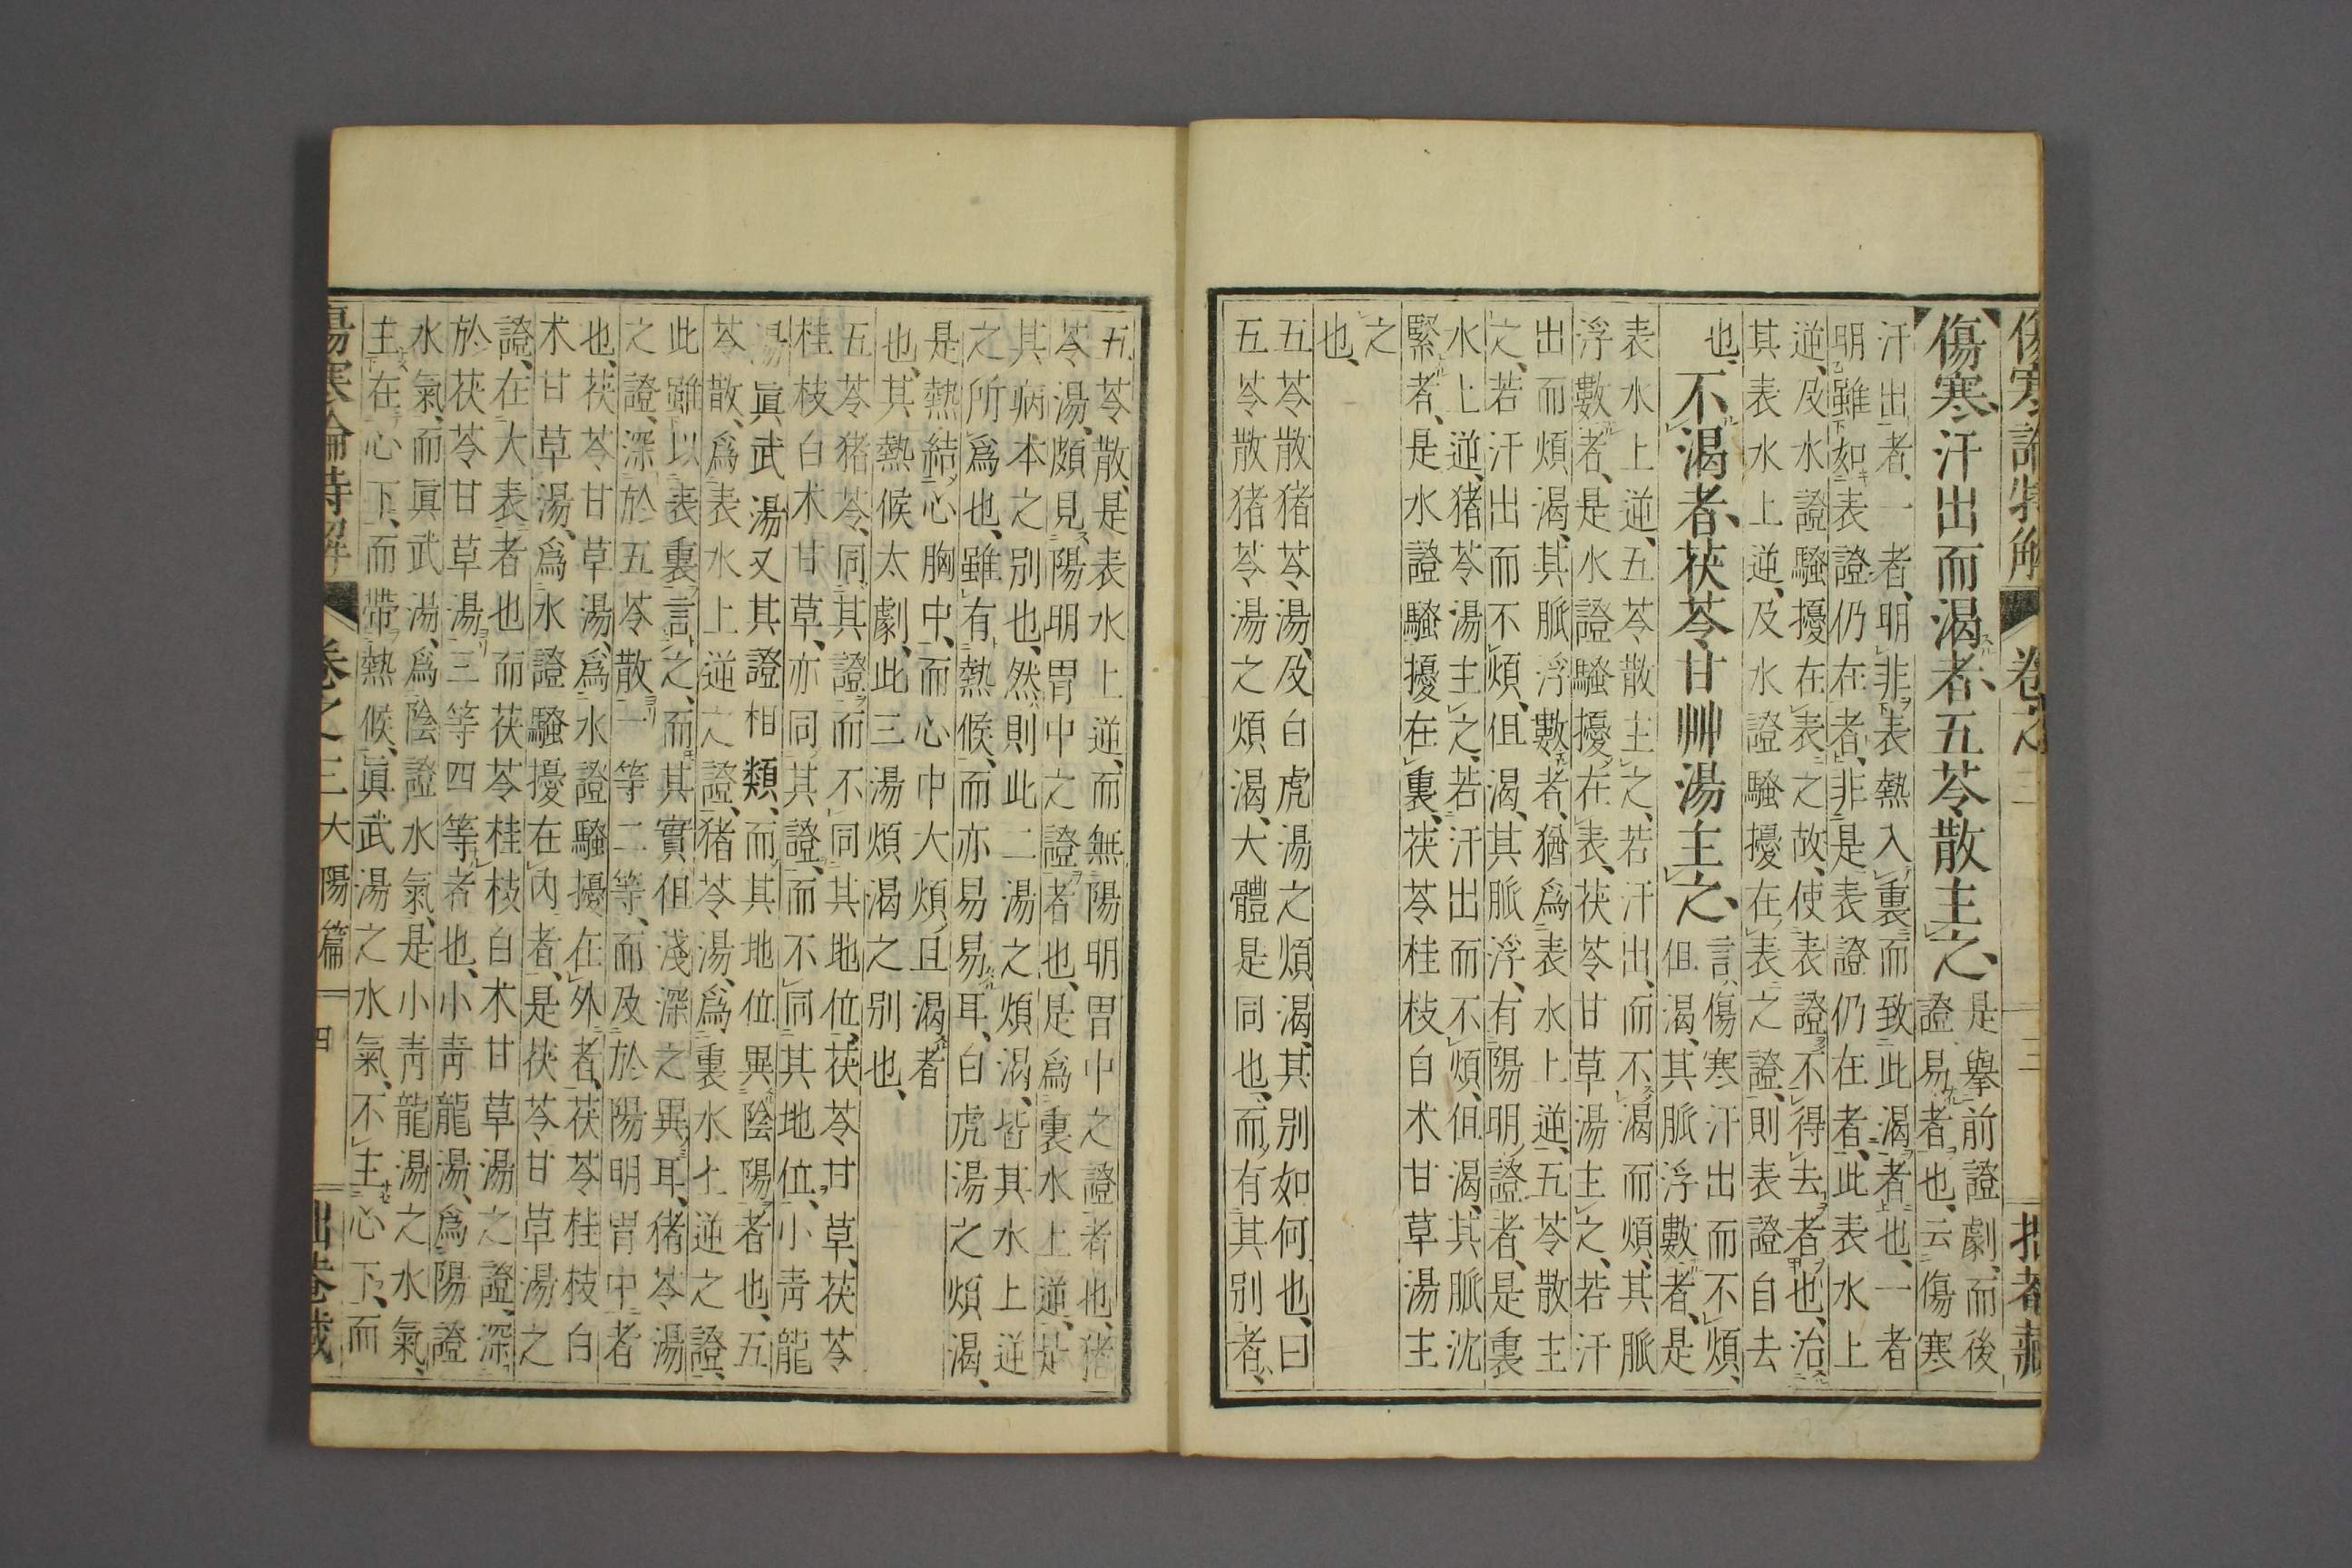 傷寒論特解 卷之三 三
傷寒、汗出而渴者、五苓散主之、
是擧前證劇、而後
證易者也、云傷寒
汗出者、一者、明非表熱入裏而致此渴者也、一者
明雖如表證仍在者、非是表證仍在者、此表水上
逆、及水證騷擾在表之故、使表證不得去者也、治
其表水上逆、及水證騷擾在表之證、則表證自去
也、
不渴者、茯苓甘艸湯主之、
言傷寒汗出而不煩、
但渴、其脈浮數者、是
表水上逆、五苓散主之、若汗出、而不渴而煩、其脈
浮數者、是水證騷擾在表、茯苓甘草湯主之、若汗
出而煩渴、其脈浮數者、猶爲表水上逆、五苓散主
之、若汗出而不煩、但渴、其脈浮、有陽明證者、是裏
水上逆、猪苓湯主之、若汗出而不煩、但渴、其脈沈
緊者、是水證騷擾在裏、茯苓桂枝白术甘草湯主
之
也、
五苓散猪苓湯、及白虎湯之煩渴、其別如何也、曰
五苓散猪苓湯之煩渴、大體是同也、而有其別者、
五苓散、是表水上逆、而無陽明胃中之證者也、猪
苓湯、頗見陽明胃中之證者也、是爲裏水上逆、是
其病本之別也、然則此二湯之煩渴、皆其水上逆
之所爲也、雖有熱候、而亦易易耳、白虎湯之煩渴、
是熱結心胸中、而心中大煩、且渴者
也、其熱候太劇、此三湯煩渴之別也、
五苓猪苓、同其證而不同其地位、茯苓甘草、茯苓
桂枝白术甘草、亦同其證、而不同其地位、小靑龍
湯眞武湯又其證相類、而其地位異陰陽者也、五
苓散、爲表水上逆之證、猪苓湯、爲裏水上逆之證、
此雖以表裏言之、而其實但淺深之異耳、猪苓湯
之證、深於五苓散一等二等、而及於陽明胃中者
也、茯苓甘草湯、爲水證騷擾在外者、茯苓桂枝白
术甘草湯、爲水證騷擾在內者、是茯苓甘草湯之
證、在大表者也而茯苓桂枝白术甘草湯之證、深
於茯苓甘草湯三等四等者也、小靑龍湯、爲陽證
水氣、而眞武湯、爲陰證水氣、是小靑龍湯之水氣、
主在心下、而帶熱候、眞武湯之水氣、不主心下、而
傷寒論特解 卷之三 大陽篇 四